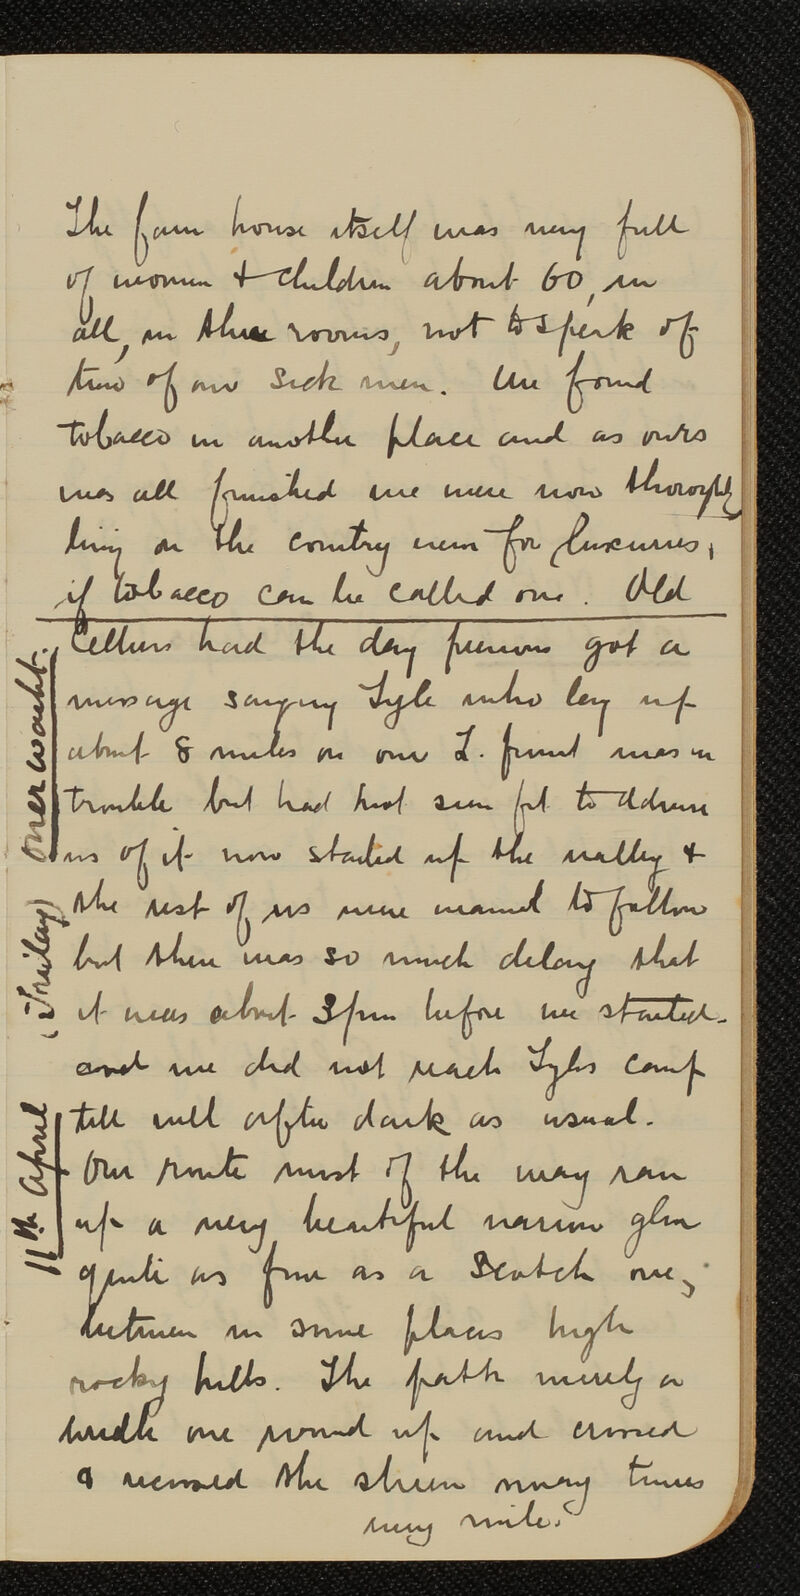 The farm house itself was very full
of women & children about 60, in
all, in three rooms, not to speak of
two of our sick men. We found
tobacco in another place and as ours
was all finished we were now thoroughly
living on the country even for luxuries,
if tobacco can be called one. Old
had the day previous got a
message saying Lyle who lay up
about 8 miles on our L. front was in
trouble but had not seen fit to advise
us of it now started up the valley &
the rest of us were warned to follow
but there was so much delay that
it was about 3pm before we started
and we did not reach Lyles camp
till well after dark as usual.
Our route most of the way ran
up a very beautiful narrow glen
quite as fine as a Scotch one,
between in some places high
rocky hills. The path merely a
bridle one wound up and crossed
& recrossed the stream many times
every mile.
11th April (Friday)